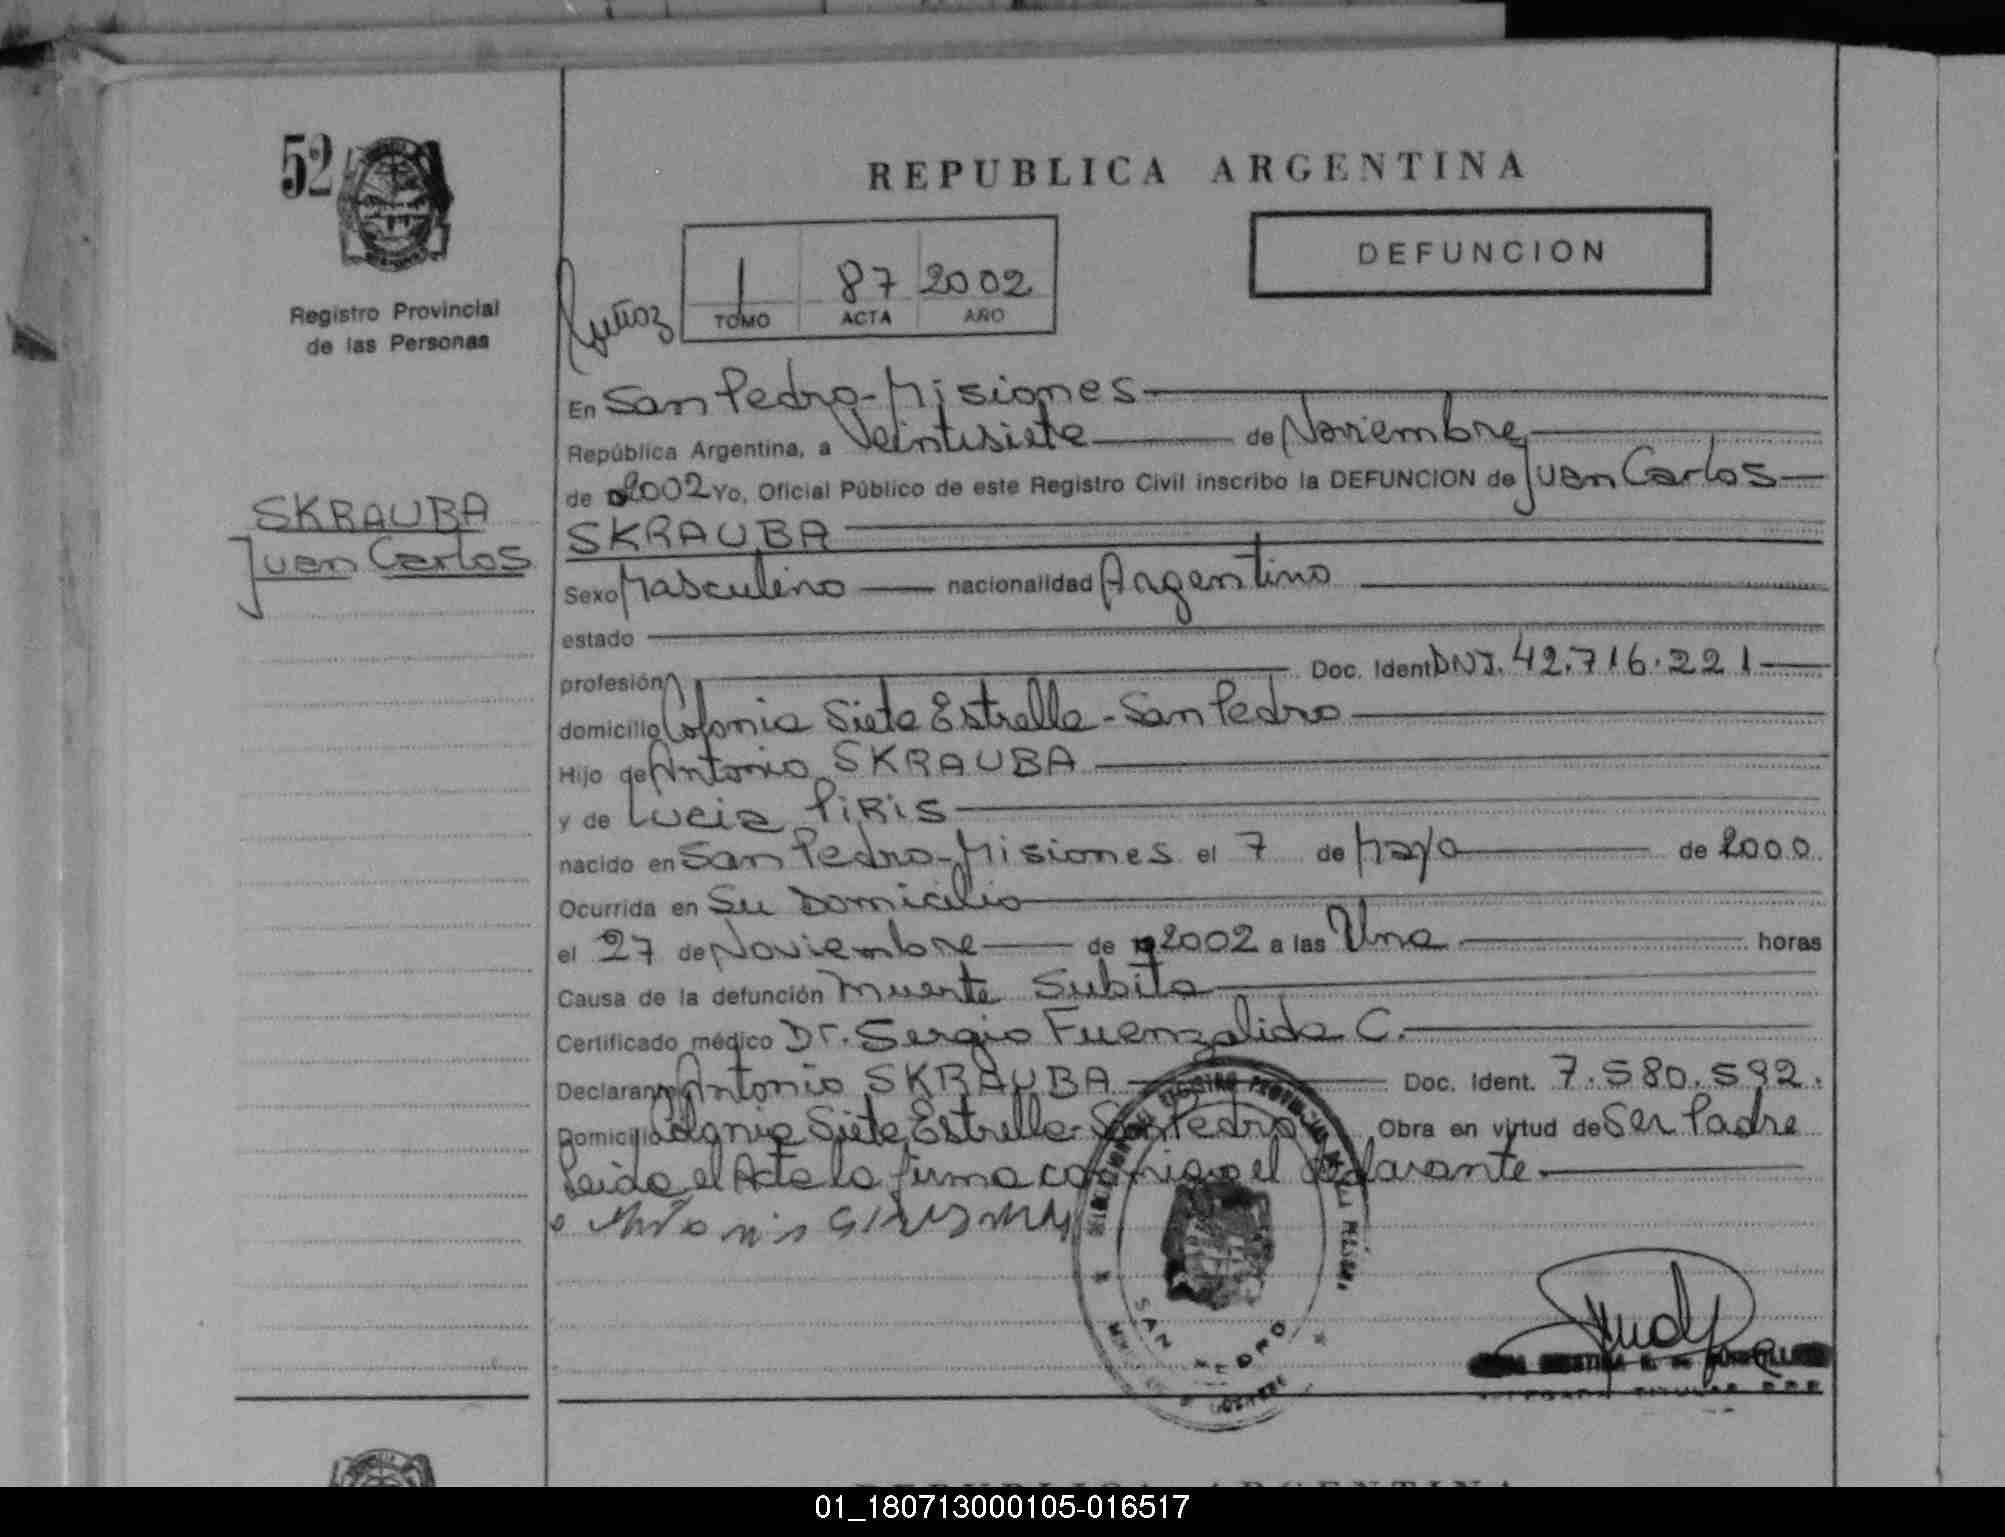 52
REPUBLICA ARGENTINA
DEFUNCION
Registro Provincial
de las Personas
Muñoz
1 87 2002
TOMO ACTA AÑO
En San Pedro - Misiones
República Argentina, a Veintisiete de Noviembre
de 2002 Yo, Oficial Público de este Registro Civil inscribo la DEFUNCION de Juan Carlos
SKRAUBA
SKRAUBA
Juan Carlos
Sexo Masculino nacionalidad Argentino
estado
profesión Doc. Ident DNI. 42.716.221
domicilio Colonia Siete Estrella - San Pedro
Hijo de Antonio SKRAUBA
y de Lucia PIRIS
nacido en San Pedro - Misiones el 7 de Mayo de 2000
Ocurrida en Su Domicilio
el 27 de Noviembre de 2002 a las Una horas
Causa de la defunción Muerte Subita
Certificado médico Dr. Sergio Fuenzalida C.
Declarante Antonio SKRAUBA Doc. Ident. 7.580.592.
Domicilio Colonia Siete Estrella - San Pedro Obra en virtud de Ser Padre
Leida el Acta la firma conmigo el declarante
SAN PEDRO
REPUBLICA ARGENTINA
01_180713000105-016517